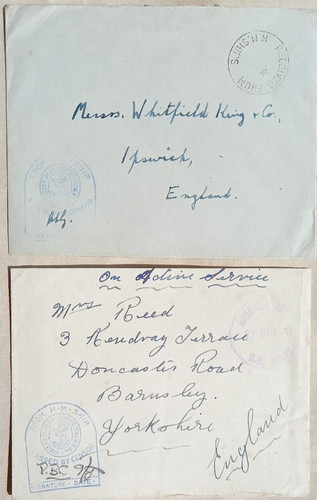 RECEIVED FROM H.M. SHIPS
Messrs. Whitfield King & Co.,
Ipswich,
England.
FROM H.M. SHIP
On Active Service
Mrs Reed
3 Kendray Terrace
Doncaster Road
Barnsley.
Yorkshire
England
FROM H.M. SHIP
PASSED BY CENSOR
SIGNATURE · DATE